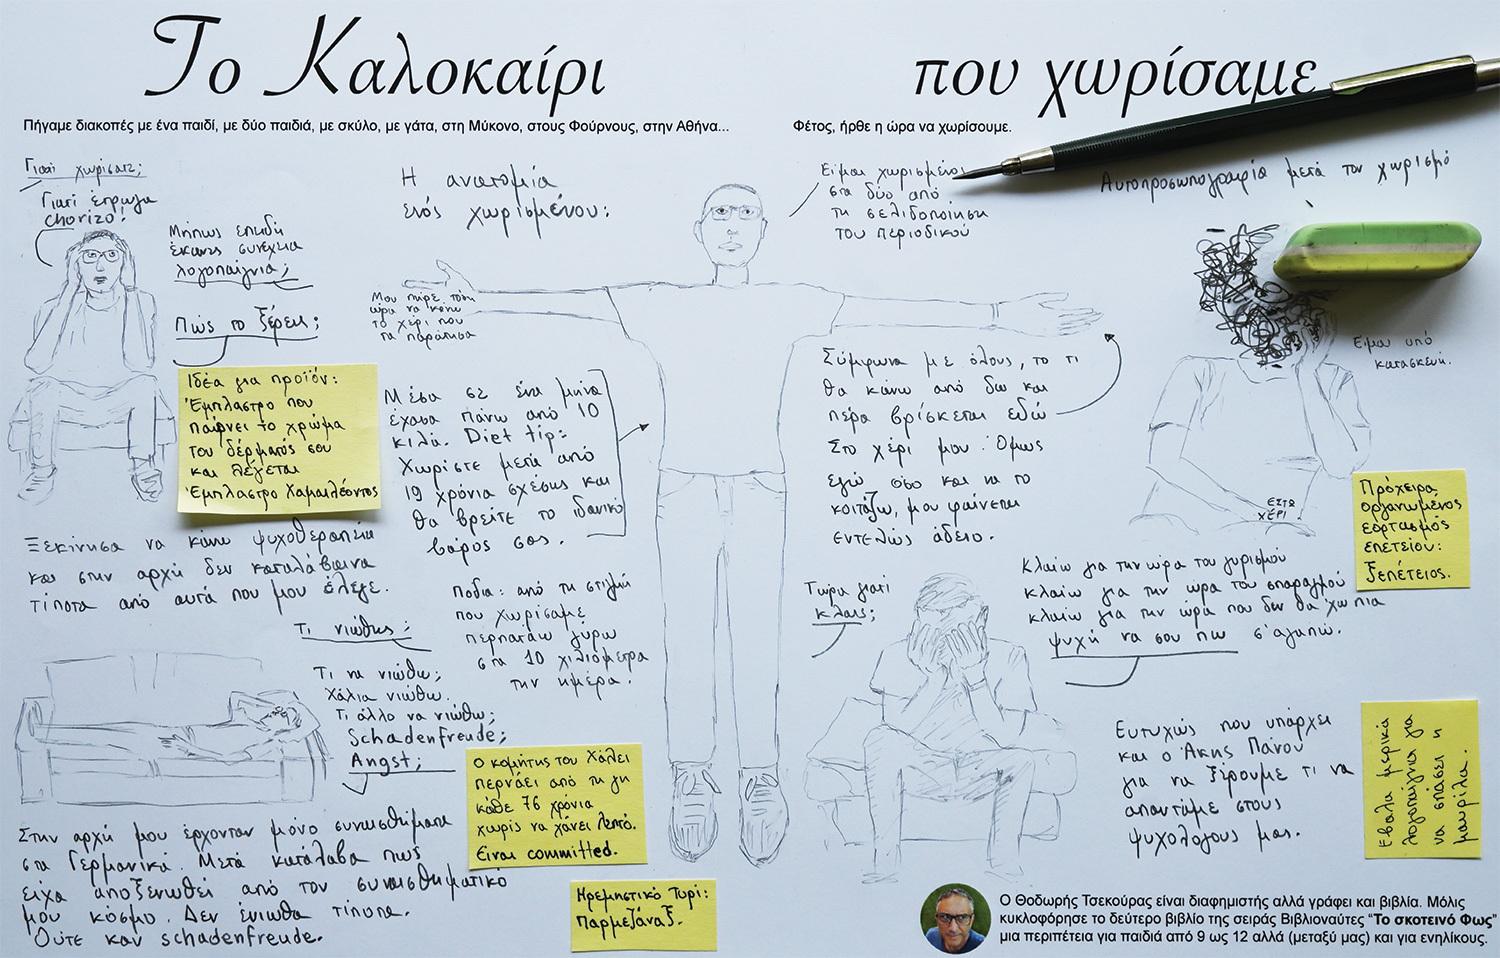 Το Καλοκαίρι
που χωρίσαμε
Πήγαμε διακοπές με ένα παιδί, με δύο παιδιά, με σκύλο, με γάτα, στη Μύκονο, στους Φούρνους, στην Αθήνα...
Φέτος, ήρθε η ώρα να χωρίσουμε.
Γιατί χωρίσατε;
Γιατί έτρωγα
chorizo!
Μήπως επειδή
έκανες συνέχεια
λογοπαίγνια;
Πώς το ξέρεις;
Ιδέα για προϊόν:
Έμπλαστρο που
παίρνει το χρώμα
του δέρματός σου
και λέγεται
Έμπλαστρο Χαμαιλέοντος
Ξεκίνησα να κάνω ψυχοθεραπεία
και στην αρχή δεν καταλάβαινα
τίποτα από αυτά που μου έλεγε.
Τι νιώθεις;
Τι να νιώθω;
Χάλια νιώθω.
Τι άλλο να νιώθω;
Schadenfreude;
Angst;
Στην αρχή μου έρχονταν μόνο συναισθήματα
στα Γερμανικά. Μετά κατάλαβα πως
είχα αποξενωθεί από τον συναισθηματικό
μου κόσμο. Δεν ένιωθα τίποτα.
Ούτε καν schadenfreude.
Η ανατομία
ενός χωρισμένου:
Μου πήρε τόση
ώρα να κάνω
το χέρι που
τα παράτησα
Μέσα σε ένα μήνα
έχασα πάνω από 10
κιλά. Diet tip:
Χωρίστε μετά από
19 χρόνια σχέσης και
θα βρείτε το ιδανικό
βάρος σας.
Πόδια: από τη στιγμή
που χωρίσαμε
περπατάω γύρω
στα 10 χιλιόμετρα
την ημέρα.
Ο κομήτης του Χάλεϊ
περνάει από τη γη
κάθε 76 χρόνια
χωρίς να χάνει λεπτό.
Είναι committed.
Ηρεμιστικό Τυρί:
Παρμεζάναξ.
Είμαι χωρισμένος
στα δύο από
τη σελιδοποίηση
του περιοδικού
Σύμφωνα με όλους, το τι
θα κάνω από δω και
πέρα βρίσκεται εδώ
Στο χέρι μου. Όμως
εγώ όσο και να το
κοιτάζω, μου φαίνεται
εντελώς άδειο.
Τώρα γιατί
κλαις;
Κλαίω για την ώρα του γυρισμού
κλαίω για την ώρα του σπαραγμού
κλαίω για την ώρα που δεν θα 'χω πια
ψυχή να σου πω σ' αγαπώ.
Ευτυχώς που υπάρχει
και ο Άκης Πάνου
για να ξέρουμε τι να
απαντάμε στους
ψυχολόγους μας.
Αυτοπροσωπογραφία μετά τον χωρισμό
Είμαι υπό
κατασκευή.
ΕΣΤΩ
ΧΕΡΙ
Πρόχειρα
οργανωμένος
εορτασμός
επετείου:
Ξεπέτειος.
Έβαλα μερικά
λογοπαίγνια για
να σπάσει η
μαυρίλα.
Ο Θοδωρής Τσεκούρας είναι διαφημιστής αλλά γράφει και βιβλία. Μόλις
κυκλοφόρησε το δεύτερο βιβλίο της σειράς Βιβλιοναύτες “Το σκοτεινό Φως”
μια περιπέτεια για παιδιά από 9 ως 12 αλλά (μεταξύ μας) και για ενηλίκους.